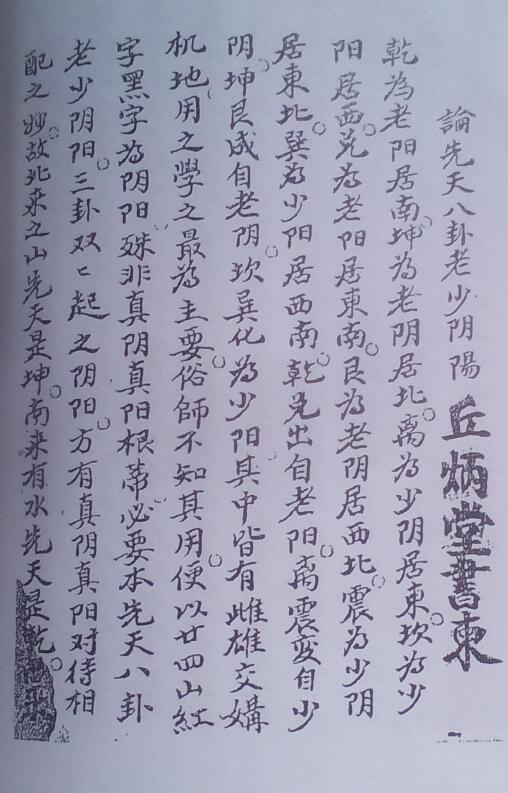 論先天八卦老少阴陽
丘炳堂書柬
乾為老阳居南。坤為老阴居北。离為少阴居東。坎為少
阳居西。兑為老阳居東南。艮為老阴居西北。震為少阴
居東北。巽為少阳居西南。乾兑出自老阳。离震变自少
阴。坤艮成自老阴。坎巽化為少阳。其中皆有雌雄交媾
机。地用之學之最為主要。俗師不知其用。便以廿四山紅
字黑字為阴阳。殊非真阴真阳根蒂。必要本先天八卦
老少阴阳。三卦双〻起之阴阳。方有真阴真阳对待相
配之妙。故北来之山先天是坤。南来有水先天是乾。